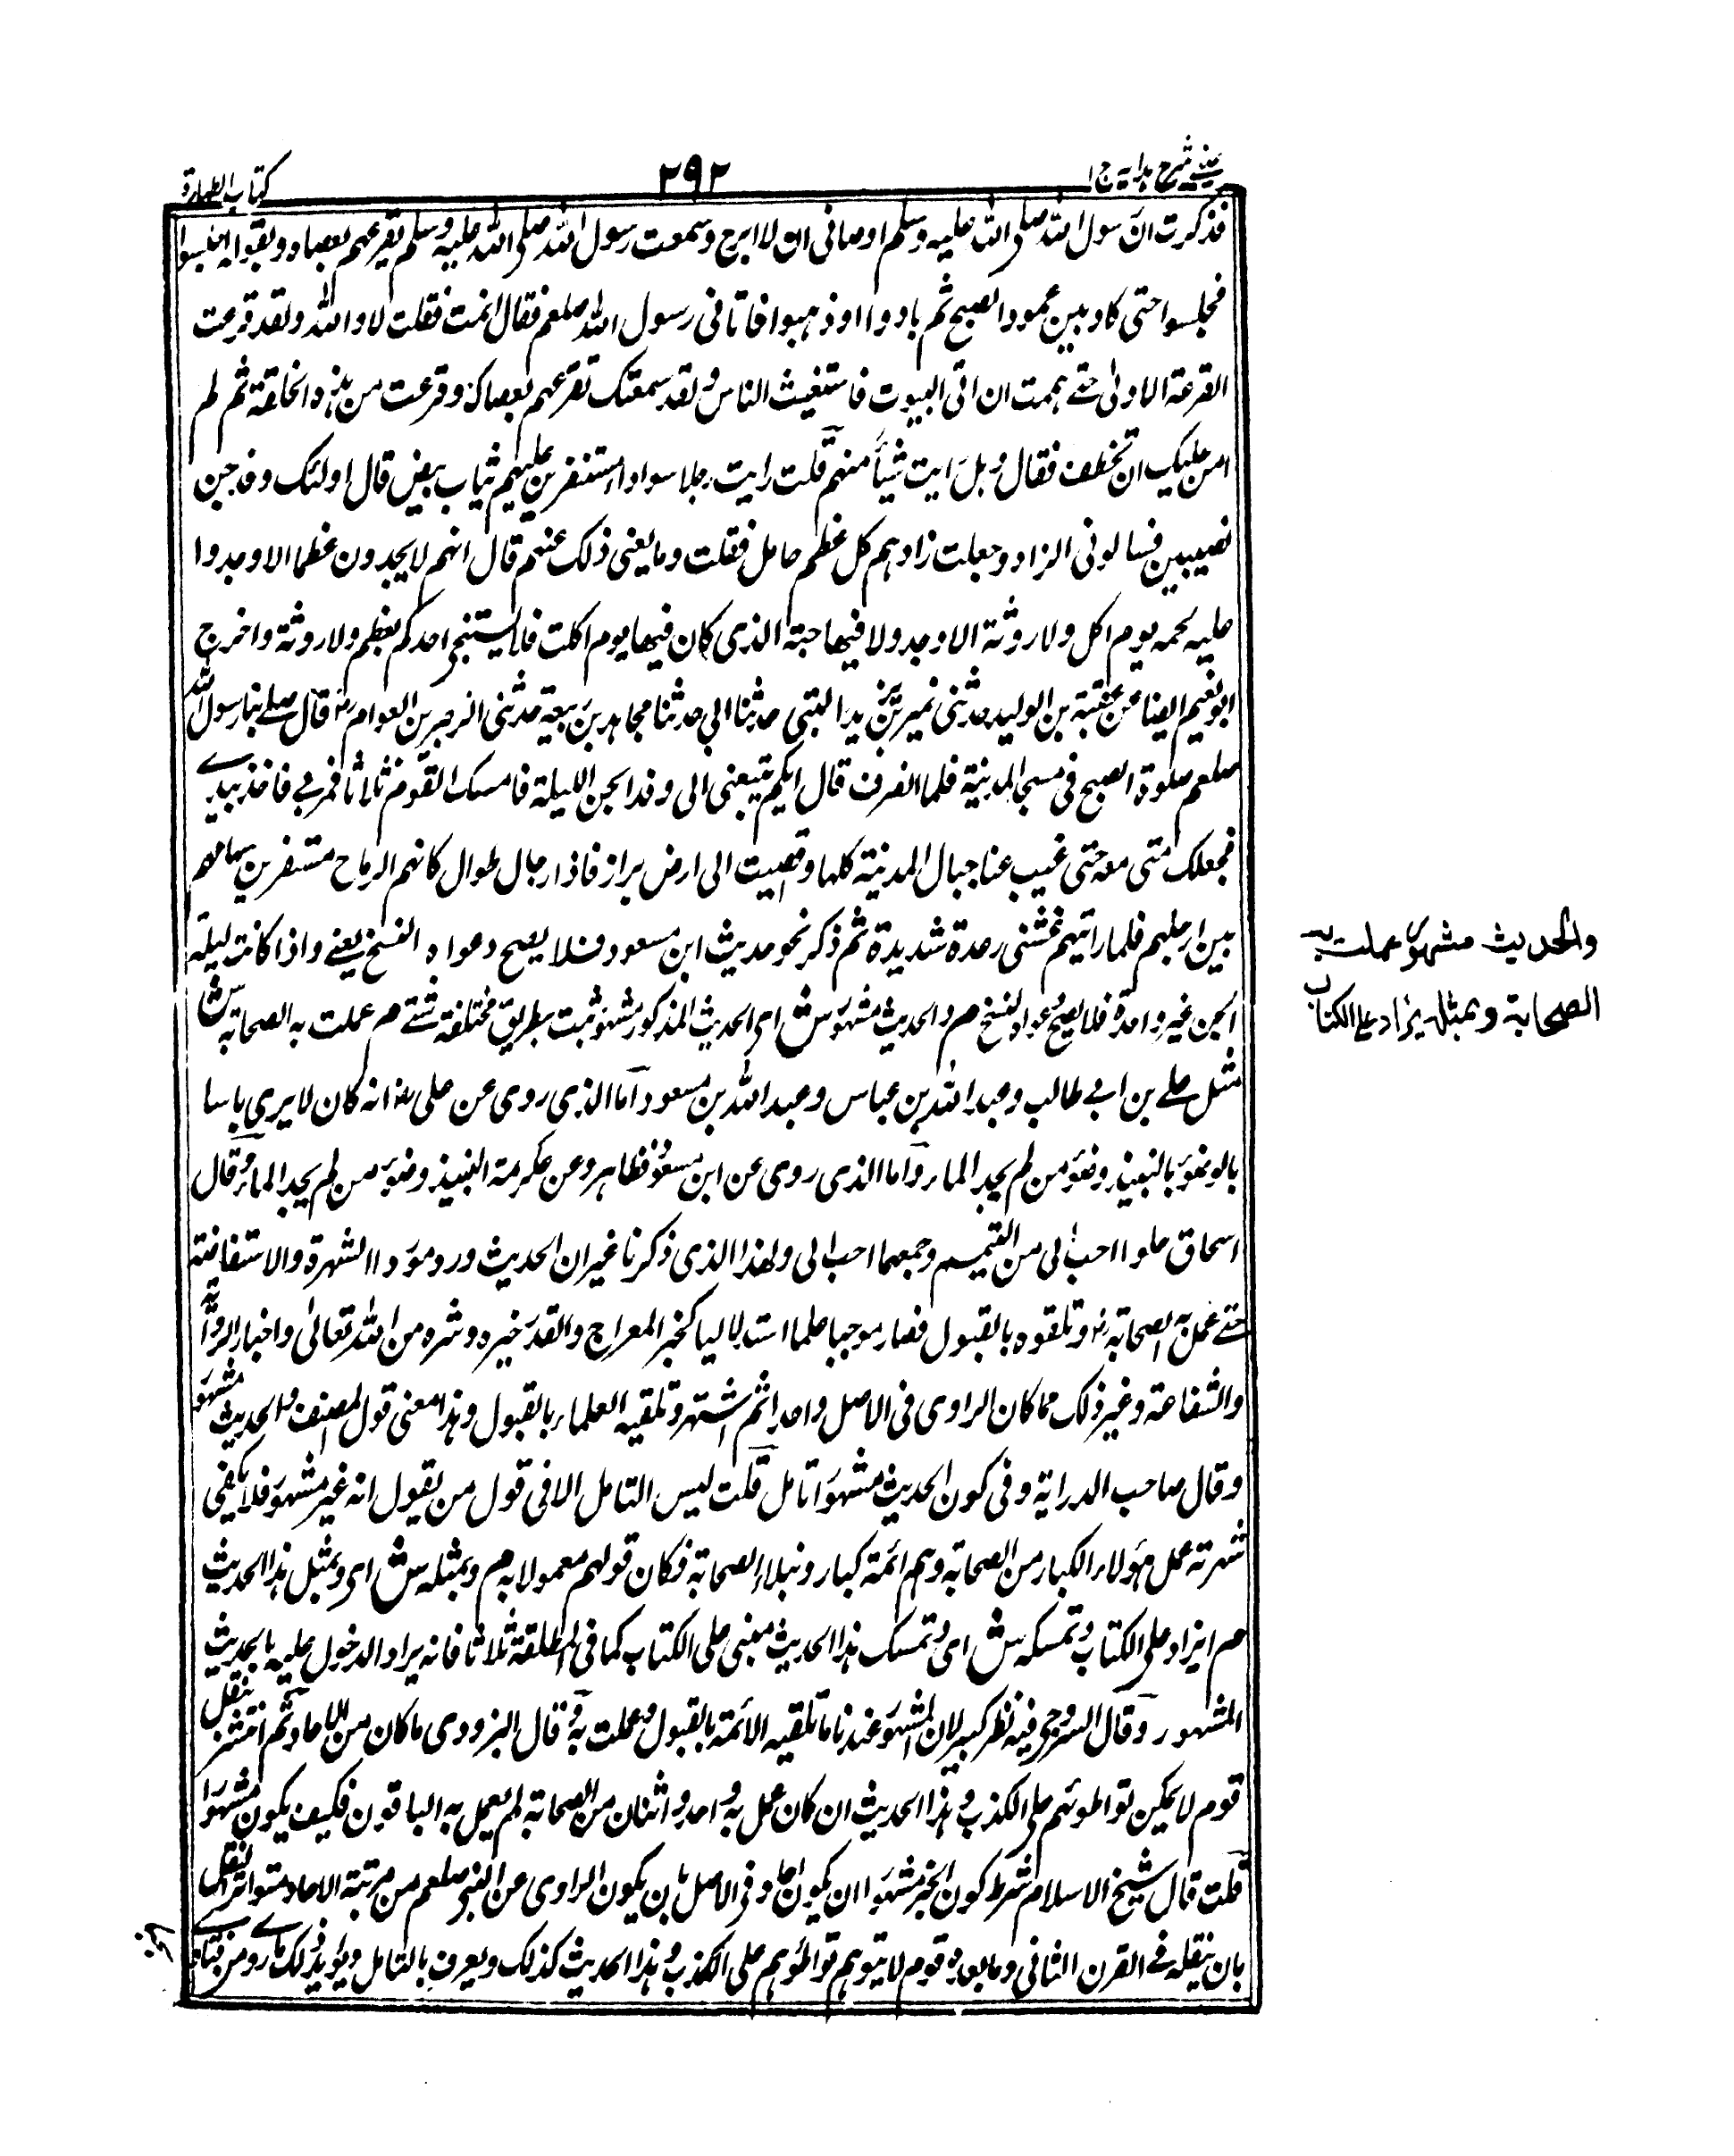 عینی شرح ہدایہ ج ۱
۲۹۲
کتاب الطهارة
فذکرت ان رسول الله صلی الله علیه وسلم اوصانی ان لا ابرح وسمعت رسول الله صلی الله علیه وسلم یقرعهم بعصاه ویقول اجلسوا
فجلسوا حتی کاد یبین عمود الصبح ثم بادوا او ذهبوا فاتانی رسول الله صلعم فقال انمت فقلت لا والله ولقد فزعت
الفزعة الاولی حتے هممت ان اتی البیوت فاستغیث الناس ولقد سمعتک تقرعهم بعصاک وفزعت من هذه الخلقة ثم لم
امن علیک ان تخطف فقال وهل رایت شیئا منهم قلت رایت رجلا سوادا مستنفرین علیهم ثیاب بیض قال اولئک وفد جن
نصیبین فسالونی الزاد وجعلت زادهم کل عظم حامل فقلت وما یغنی ذلک عنهم قال انهم لا یجدون عظما الا وجدوا
علیه لحمه یوم اکل ولا روثة الا وجدولا فیها حبة الذی کان فیها یوم اکلت فلا یستنجی احدکم بعظم ولا روثة واخرج
ابو نعیم ایضا عن عقبة بن الولید حدثنی نمیر بن یزید القتبی حدثنا ابی حدثنا مجاهد بن ربیعة حدثنی الزبیر بن العوام رض قال صلے بنا رسول الله
صلعم صلوة الصبح فی مسجد المدینة فلما انصرف قال ایکم یتبعنی الی وفد الجن اللیلة فامسک القوم ثلاثا فمر بی فاخذ بیدے
فجعلت امشی معه حتی غیب عنا جبال المدینة کلها وقصیت الی ارض براز فاذا رجال طوال کانهم الرماح مستنفرین ثیابهم
بین ارجلهم فلما رایتهم غشتنی رعدة شدیدة ثم ذکر نحو حدیث ابن مسعود فلا یصح دعواه النسخ یعنے واذا کانت لیلة
الجن غیر واحدة فلا یصح دعوا النسخ م والحدیث مشهور ش ای الحدیث المذکور مشهور ثبت بطریق مختلفة شتے م عملت به الصحابة ش
مثل علے بن ابی طالب وعبد الله بن عباس وعبد الله بن مسعود اما الذی روی عن علی رض انه کان لا یری باسا
بالوضوء بالنبیذ وضوء من لم یجد الماء واما الذی روی عن ابن مسعود فظاهر وعن عکرمة النبیذ وضوء من لم یجد الماء وقال
اسحاق حلوا احب الی من التیمم وجمعهما احب الی ولهذا الذی ذکرنا غیر ان الحدیث ورد مورد الشهرة والاستفاضة
حتے عمل به الصحابة رض وتلقوه بالقبول فصار موجبا علما استدلالیا کخبر المعراج والقدر خیره وشره من الله تعالی واخبار الرؤیة
والشفاعة وغیر ذلک مما کان الراوی فی الاصل واحد اثم اشتهر وتلقیه العلماء بالقبول وهذا معنی قول المصنف والحدیث مشهور
وقال صاحب الدرایة وفی کون الحدیث مشهورا تامل قلت لیس التامل الا فی قول من یقول انه غیر مشهور فلا یکفی
شهرته عمل هؤلاء الکبار من الصحابة وهم ائمة کبار ونبلاء الصحابة فکان قولهم معمولا به م وبمثله ش ای وبمثل هذا الحدیث
م ایزاد علی الکتاب وتمسکه ش ای وتمسک هذا الحدیث مبنی علی الکتاب کما فی المطلقة ثلاثا فانه یراد الدخول علیه بالحدیث
المشهور وقال السروجی فیه نظر کبیر لان المشهور عندنا ما تلقیه الائمة بالقبول وعملت به وقال البزدودی ما کان من الاحاد ثم انتشر بنقل
قوم لا یمکن تواطؤهم علی الکذب وهذا الحدیث ان کان عمل به واحد واثنان من الصحابة لم یعمل به الباقون فکیف یکون مشهورا
قلت قال شیخ الاسلام شرط کون الخبر مشهورا ان یکون احاد فی الاصل بان یکون الراوی عن النبی صلعم من مرتبة الاحاد متواتر النقل
بان ینقله فے القرن الثانی وما بعده قوم لا یتوهم تواطؤهم علی الکذب وهذا الحدیث کذلک ویعرف بالتامل ویؤید ذلک
والحدیث مشهور عملت به
الصحابة وبمثله یزاد علی الکتاب